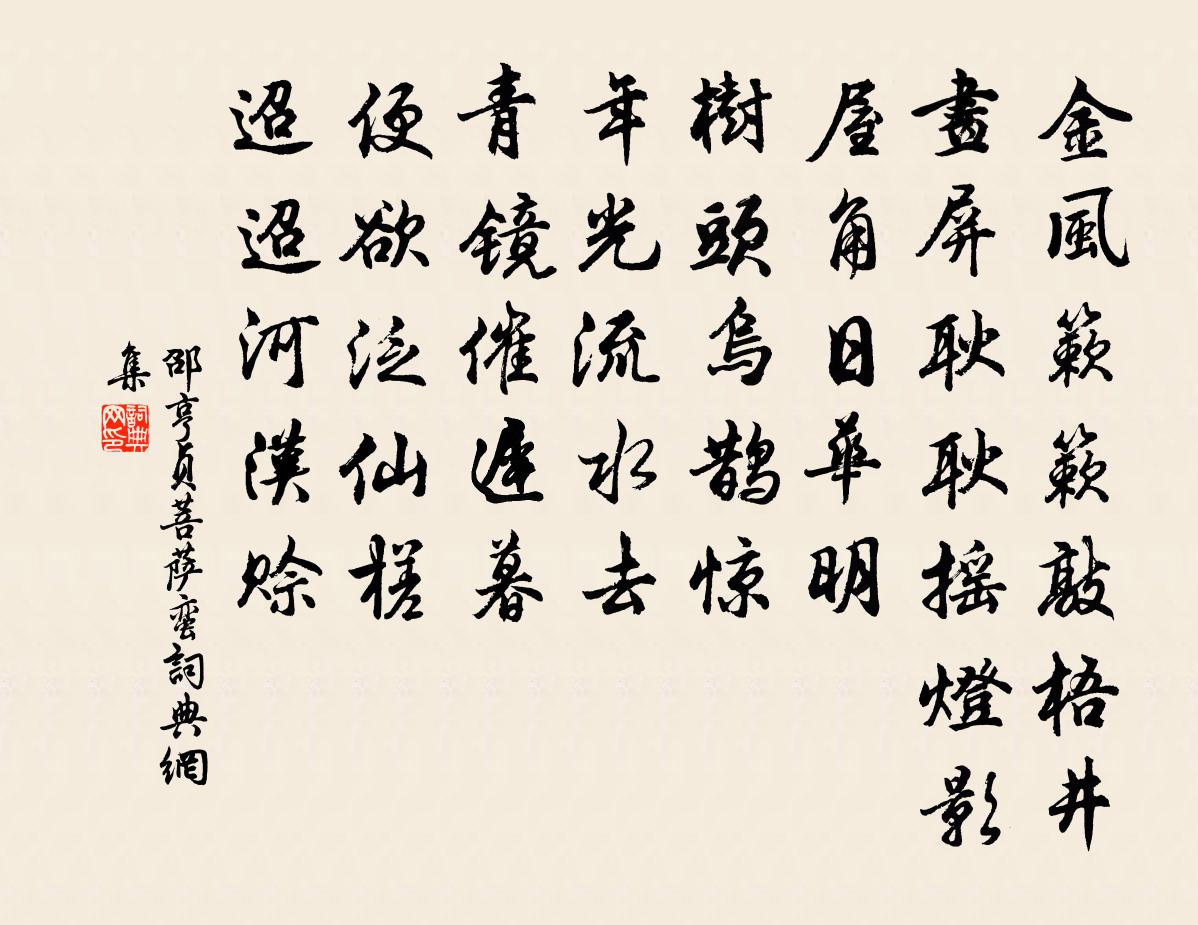 金風簌簌敲梧井
畫屏耿耿搖燈影
屋角日華明
樹頭烏鵲惊
年光流水去
青鏡催遲暮
便欲泛仙槎
迢迢河漢賒
邵亨貞菩薩蛮詞典網
集
詞典网印